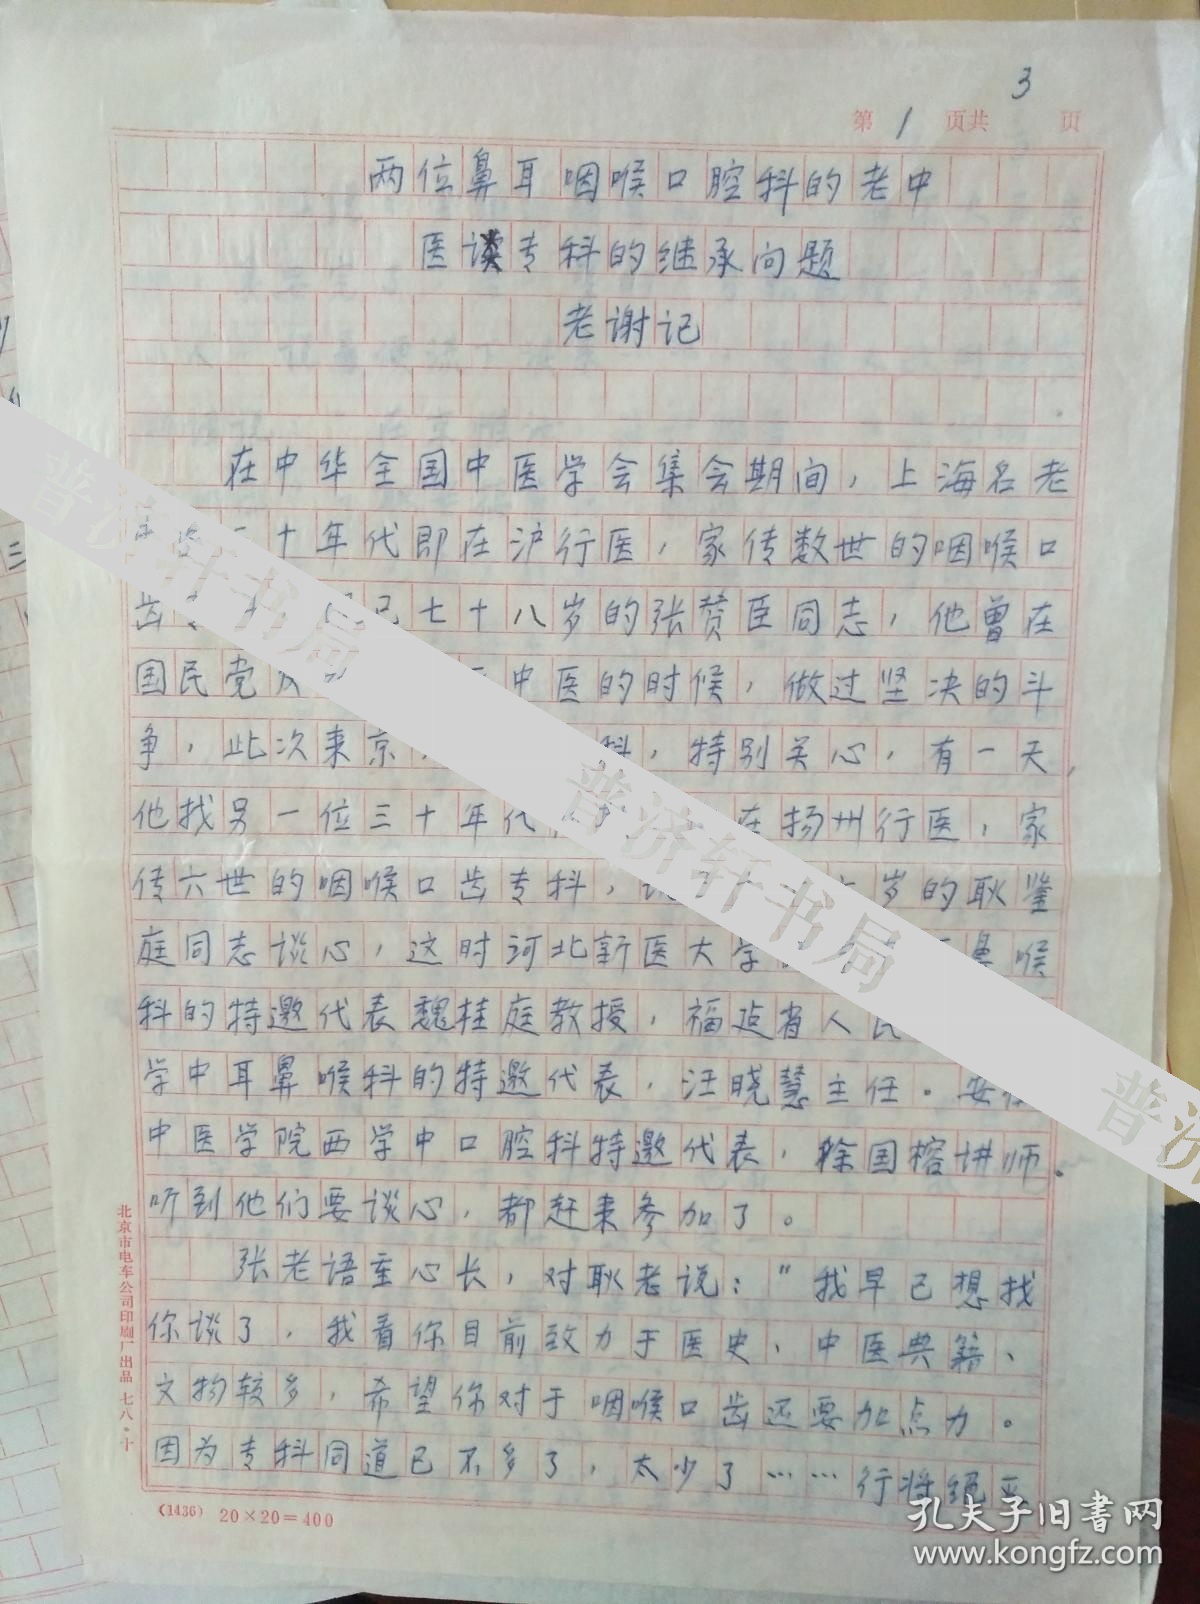 3
第1页共 页
两位鼻耳咽喉口腔科的老中
医谈专科的继承问题
老谢记
在中华全国中医学会集会期间，上海名老
十年代即在沪行医，家传数世的咽喉口
齿 已七十八岁的张赞臣同志，他曾在
国民党 中医的时候，做过坚决的斗
争，此次来京， 科，特别关心，有一天，
他找另一位三十年代 在扬州行医，家
传六世的咽喉口齿专科， 岁的耿鉴
庭同志谈心，这时河北新医大学 鼻喉
科的特邀代表魏桂庭教授，福建省人民
学中耳鼻喉科的特邀代表，汪晓慧主任。安徽
中医学院西学中口腔科特邀代表，徐国榕讲师。
听到他们要谈心，都赶来参加了。
张老语重心长，对耿老说：“我早已想找
你谈了，我看你目前致力于医史、中医典籍、
文物较多，希望你对于咽喉口齿还要加点力。
因为专科同道已不多了，太少了……行将绝
北京市电车公司印刷厂出品 七八·十
(1436) 20×20=400
普济轩书局
普济轩书局
普济
孔夫子旧书网
www.kongfz.com